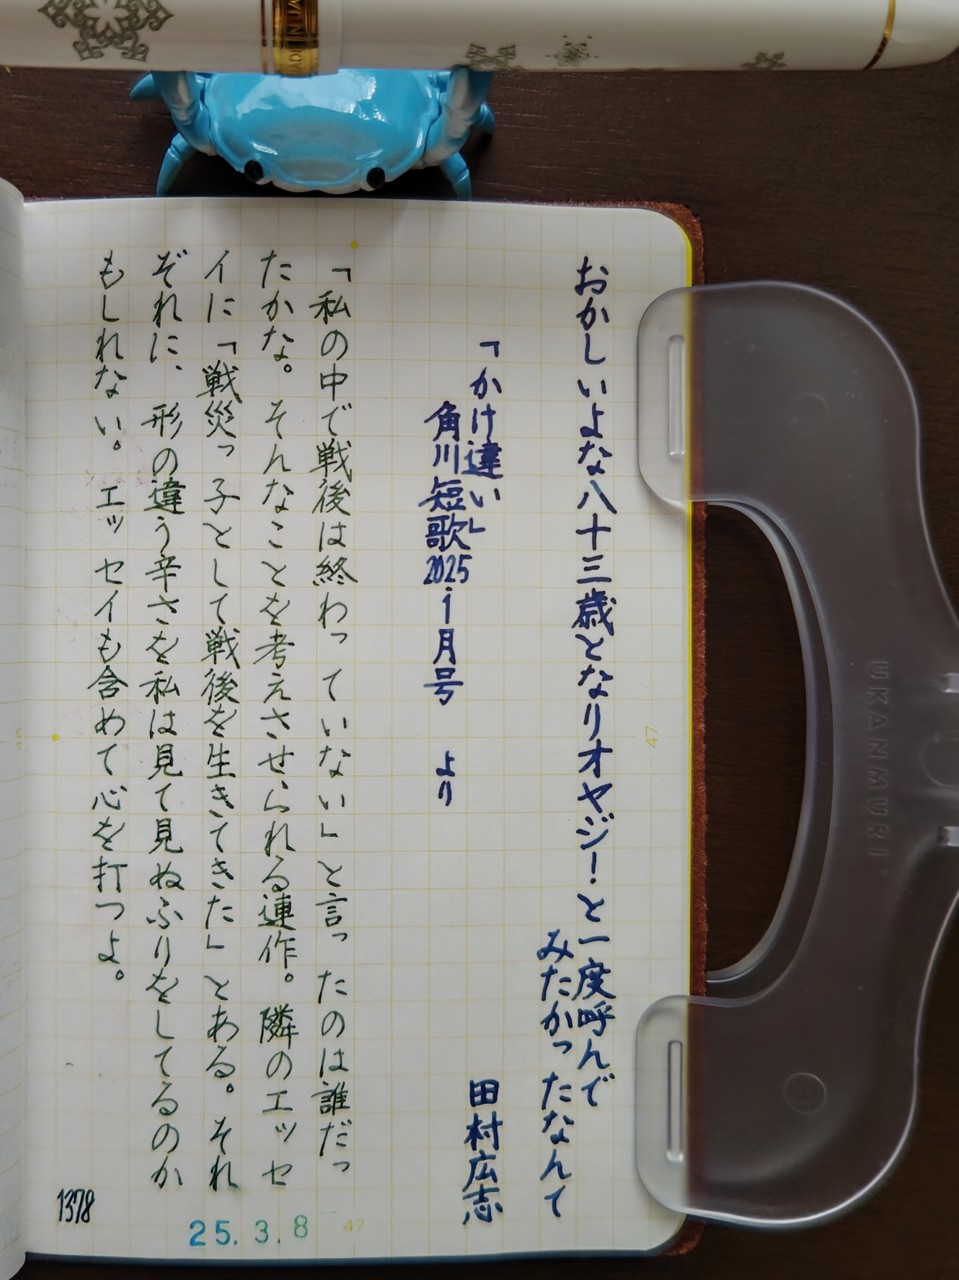 おかしいよな八十三歳となりオヤジ!と一度呼んで
みたかったなんて
田村広志
「かけ違い」
角川短歌2025.1月号 より
「私の中で戦後は終わっていない」と言ったのは誰だっ
たかな。そんなことを考えさせられる連作。隣のエッセ
イに「戦災っ子として戦後を生きてきた」とある。それ
ぞれに、形の違う辛さを私は見て見ぬふりをしてるのか
もしれない。エッセイも含めて心を打つよ。
1378
25.3.8
47
47
UKANMURI